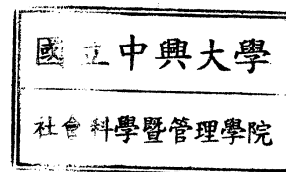 國立中興大學
社會科學暨管理學院